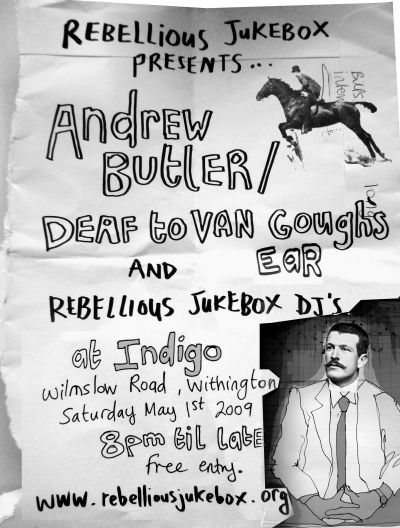 REBELLIOUS JUKEBOX
PRESENTS...
ANDREW
BUTLER/
DEAF to VAN Goughs
EAR
AND
REBELLIOUS JUKEBOX DJ's
at Indigo
Wilmslow Road, Withington
Saturday May 1st 2009
8pm til LATE
free entry.
www.rebelliousjukebox.org